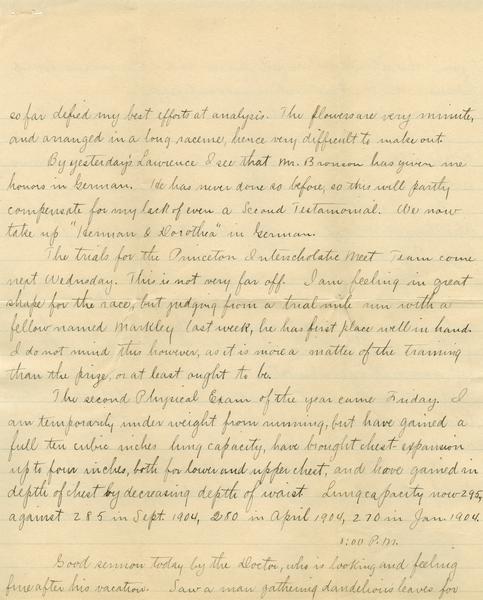 so far defied my best efforts at analysis. The flowers are very minute,
and arranged in a long raceme, hence very difficult to make out.
By yesterday's Lawrence I see that Mr. Bronson has given me
honors in German. He has never done so before, so this will partly
compensate for my lack of even a Second Testimonial. We now
take up "Herman & Dorothea" in German.
The trials for the Princeton Interscholastic Meet Team come
next Wednesday. This is not very far off. I am feeling in great
shape for the race, but judging from a trial mile run with a
fellow named Markley last week, he has first place well in hand.
I do not mind this however, as it is more a matter of the training
than the prize, or at least ought to be.
The second Physical Exam of the year came Friday. I
am temporarily under weight from running, but have gained a
full ten cubic inches lung capacity, have brought chest expansion
up to four inches, both for lower and upper chest, and have gained in
depth of chest by decreasing depth of waist. Lung capacity now 295,
against 285 in Sept. 1904, 280 in April 1904, 270 in Jan. 1904.
1:00 P.M.
Good sermon today by the Doctor, who is looking and feeling
fine after his vacation. Saw a man gathering dandelion's leaves for